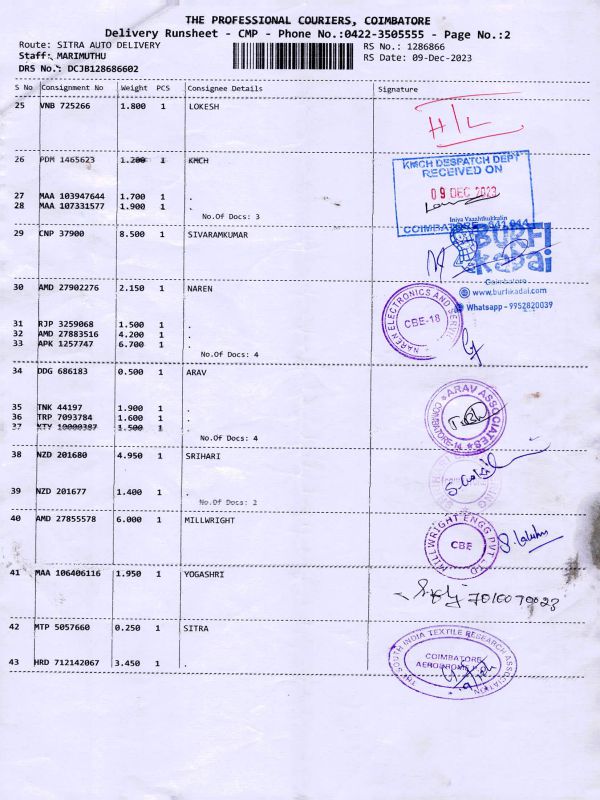 THE PROFESSIONAL COURIERS, COIMBATORE
Delivery Runsheet - CMP - Phone No.:0422-3505555 - Page No.:2
Route: SITRA AUTO DELIVERY RS No.: 1286866
Staff: MARIMUTHU RS Date: 09-Dec-2023
DRS No.: DCJB128686602
S No Consignment No Weight PCS Consignee Details Signature
25 VNB 725266 1.800 1 LOKESH
H/L
26 PDM 1465623 1.200 1 KMCH
KMCH DESPATCH DEPT
RECEIVED ON
09 DEC 2023
27 MAA 103947644 1.700 1 .
28 MAA 107331577 1.900 1 .
No.Of Docs: 3
Iniya Vaazhthukkalin
COIMBATORE - 641 014
29 CNP 37900 8.500 1 SIVARAMKUMAR
BURFI
Kadai
Coimbatore
30 AMD 27902276 2.150 1 NAREN
www.burfikadai.com
Whatsapp - 9952820039
NAREN ELECTRONICS AND SERVI
CBE-18
31 RJP 3259068 1.500 1 .
32 AMD 27883516 4.200 1 .
33 APK 1257747 6.700 1 .
No.Of Docs: 4
34 DDG 686183 0.500 1 ARAV
ARAV ASSOCIATES
COIMBATORE-14
35 TNK 44197 1.900 1 .
36 TRP 7093784 1.600 1 .
37 KTY 10000387 1.500 1 .
No.Of Docs: 4
38 NZD 201680 4.950 1 SRIHARI
39 NZD 201677 1.400 1 .
No.Of Docs: 2
40 AMD 27855578 6.000 1 MILLWRIGHT
MILLWRIGHT ENGG PVT LTD
CBE
41 MAA 106406116 1.950 1 YOGASHRI
42 MTP 5057660 0.250 1 SITRA
THE SOUTH INDIA TEXTILE RESEARCH ASSOCIATION
COIMBATORE
AERODROME P.O.
43 HRD 712142067 3.450 1 .